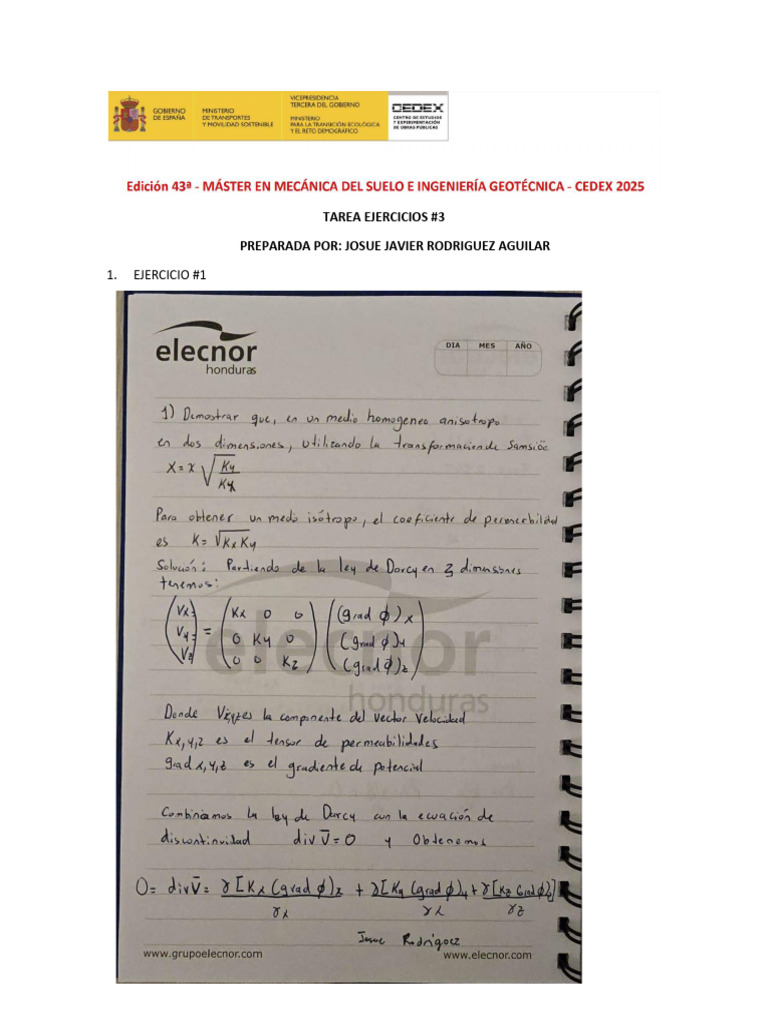 GOBIERNO
DE ESPAÑA
MINISTERIO
DE TRANSPORTES
Y MOVILIDAD SOSTENIBLE
VICEPRESIDENCIA
TERCERA DEL GOBIERNO
MINISTERIO
PARA LA TRANSICIÓN ECOLÓGICA
Y EL RETO DEMOGRÁFICO
CEDEX
CENTRO DE ESTUDIOS
Y EXPERIMENTACIÓN
DE OBRAS PÚBLICAS
Edición 43ª - MÁSTER EN MECÁNICA DEL SUELO E INGENIERÍA GEOTÉCNICA - CEDEX 2025
TAREA EJERCICIOS #3
PREPARADA POR: JOSUE JAVIER RODRIGUEZ AGUILAR
1. EJERCICIO #1
elecnor
honduras
DIA MES AÑO
1) Demostrar que, en un medio homogeneo anisotropo
en dos dimensiones, utilizando la transformacion de
X = x √(Ky/Kx)
Para obtener un medio isótropo, el coeficiente de permeabilidad
es K = √KxKy
Solución: Partiendo de la ley de Darcy en 3 dimensiones
tenemos:
(Vx) = (Kx 0 0) ((grad ϕ)x)
(Vy) (0 Ky 0) ((grad ϕ)y)
(Vz) (0 0 Kz) ((grad ϕ)z)
elecnor
honduras
Donde Vx,y,z es la componente del vector velocidad
Kx,y,z es el tensor de permeabilidades
grad x,y,z es el gradiente de potencial
Combinamos la ley de Darcy con la ecuación de
discontinuidad div V̄ = 0 y Obtenemos
0 = div V̄ = γ[Kx(grad ϕ)z + γ[Ky(grad ϕ)y + γ[Kz Grad ϕ)z]
γx γx γz
Josue Rodriguez
www.grupoelecnor.com
www.elecnor.com